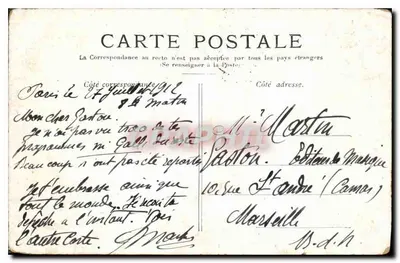 CARTE POSTALE
La Correspondance au recto n'est pas acceptée par tous les pays étrangers
(Se renseigner à la Poste)
Côté correspondance
Côté adresse.
Paris le 27 Juillet 1912
8h matin
Mon cher Gaston
Je n'ai pas vu
programmes ni
Beaucoup ont pas
Je t'embrasse ainsi que
tout le monde.
dépêche à l'instant. Vois
l'autre carte. Martin
Mr Martin
Gaston. Editeur de Musique
10 rue St André (Camas)
Marseille
B-d-R